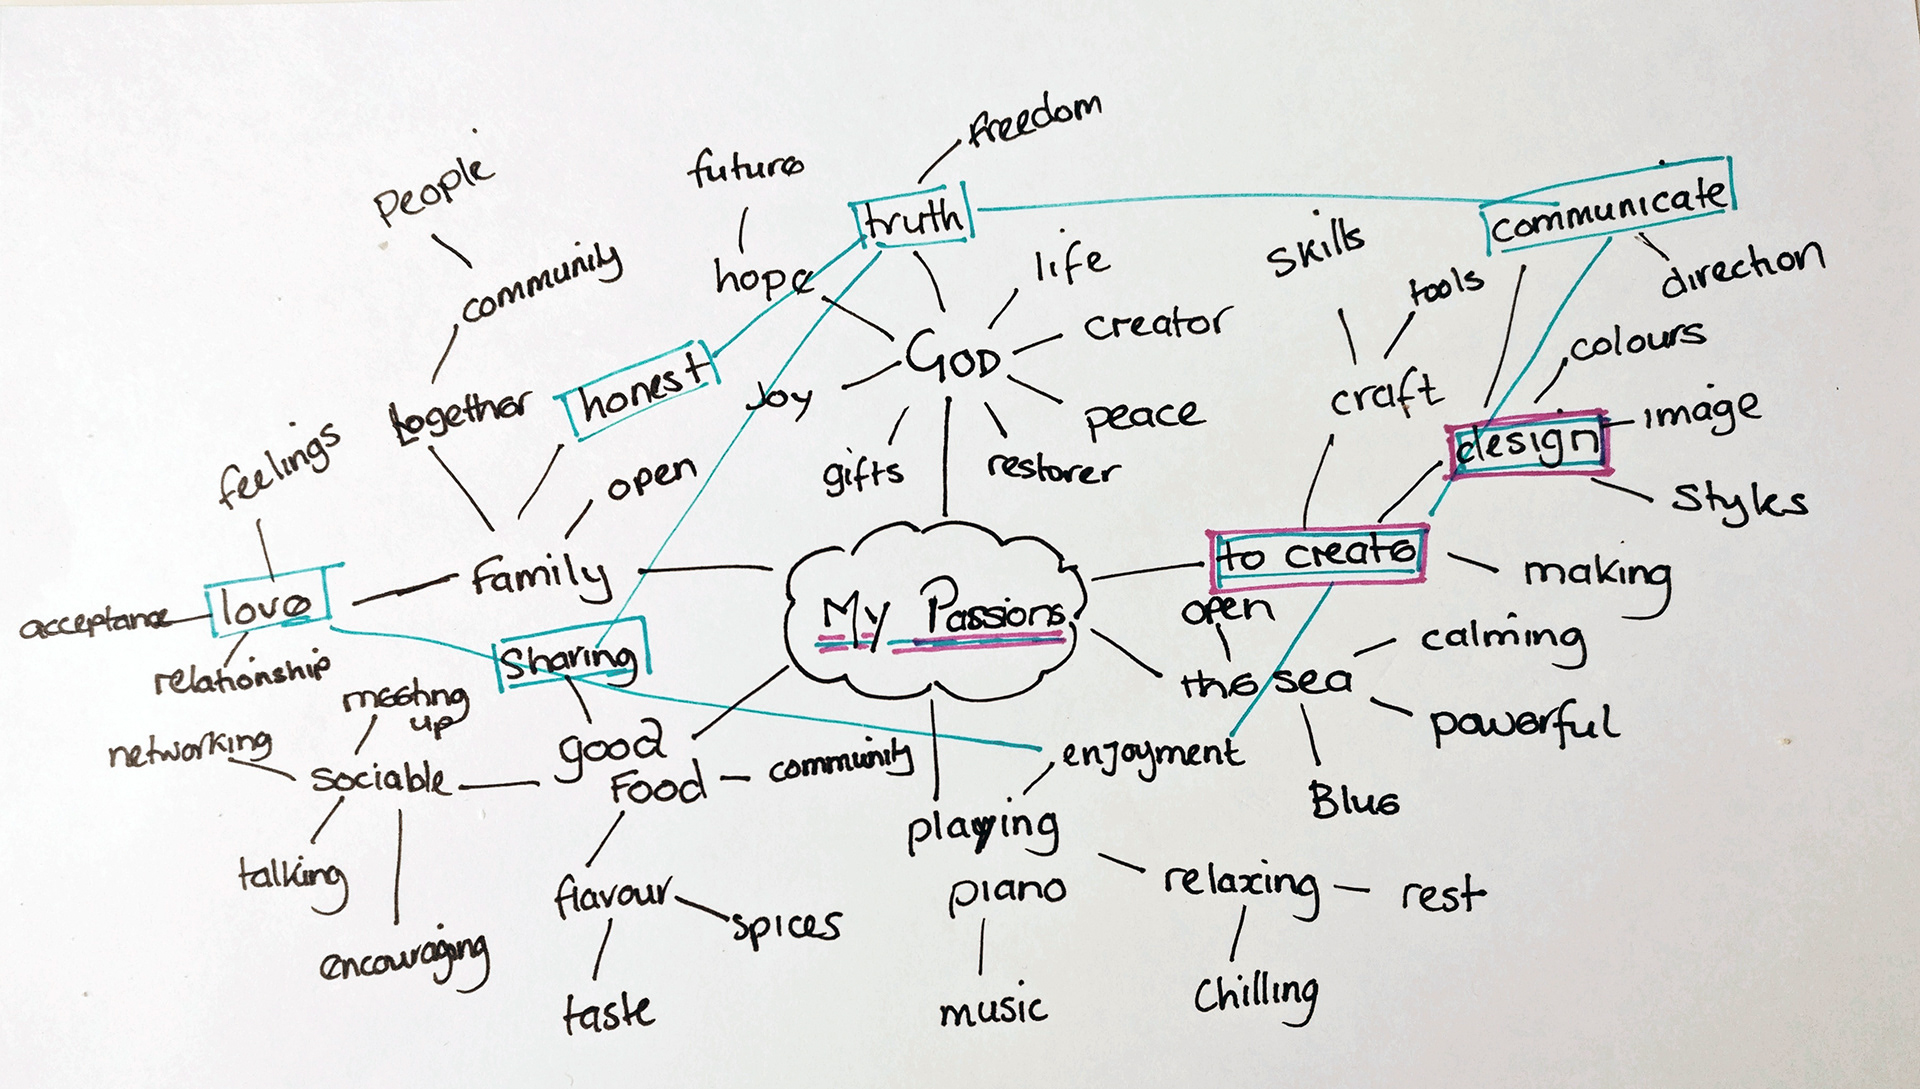 freedom
future
People
truth
communicate
life
skills
hope
community
tools
direction
creator
GOD
colours
honest
Joy
craft
image
together
peace
design
feelings
gifts
restorer
open
Styles
to create
family
making
love
acceptance
My Passions
open
calming
Sharing
relationship
the sea
meeting
up
powerful
networking
good
Food
community
enjoyment
sociable
Blue
playing
piano
talking
flavour
relaxing
rest
spices
encouraging
taste
music
Chilling